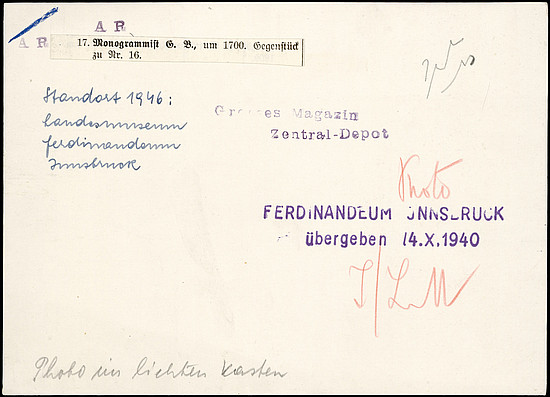 A R
A R
17. Monogrammist G. B., um 1700. Gegenstück
zu Nr. 16.
Standort 1946:
Landesmuseum
Ferdinandeum
Innsbruck
Grosses Magazin
Zentral-Depot
Photo
FERDINANDEUM INNSBRUCK
übergeben 14.X.1940
I/LM
Photo im lichten Kasten